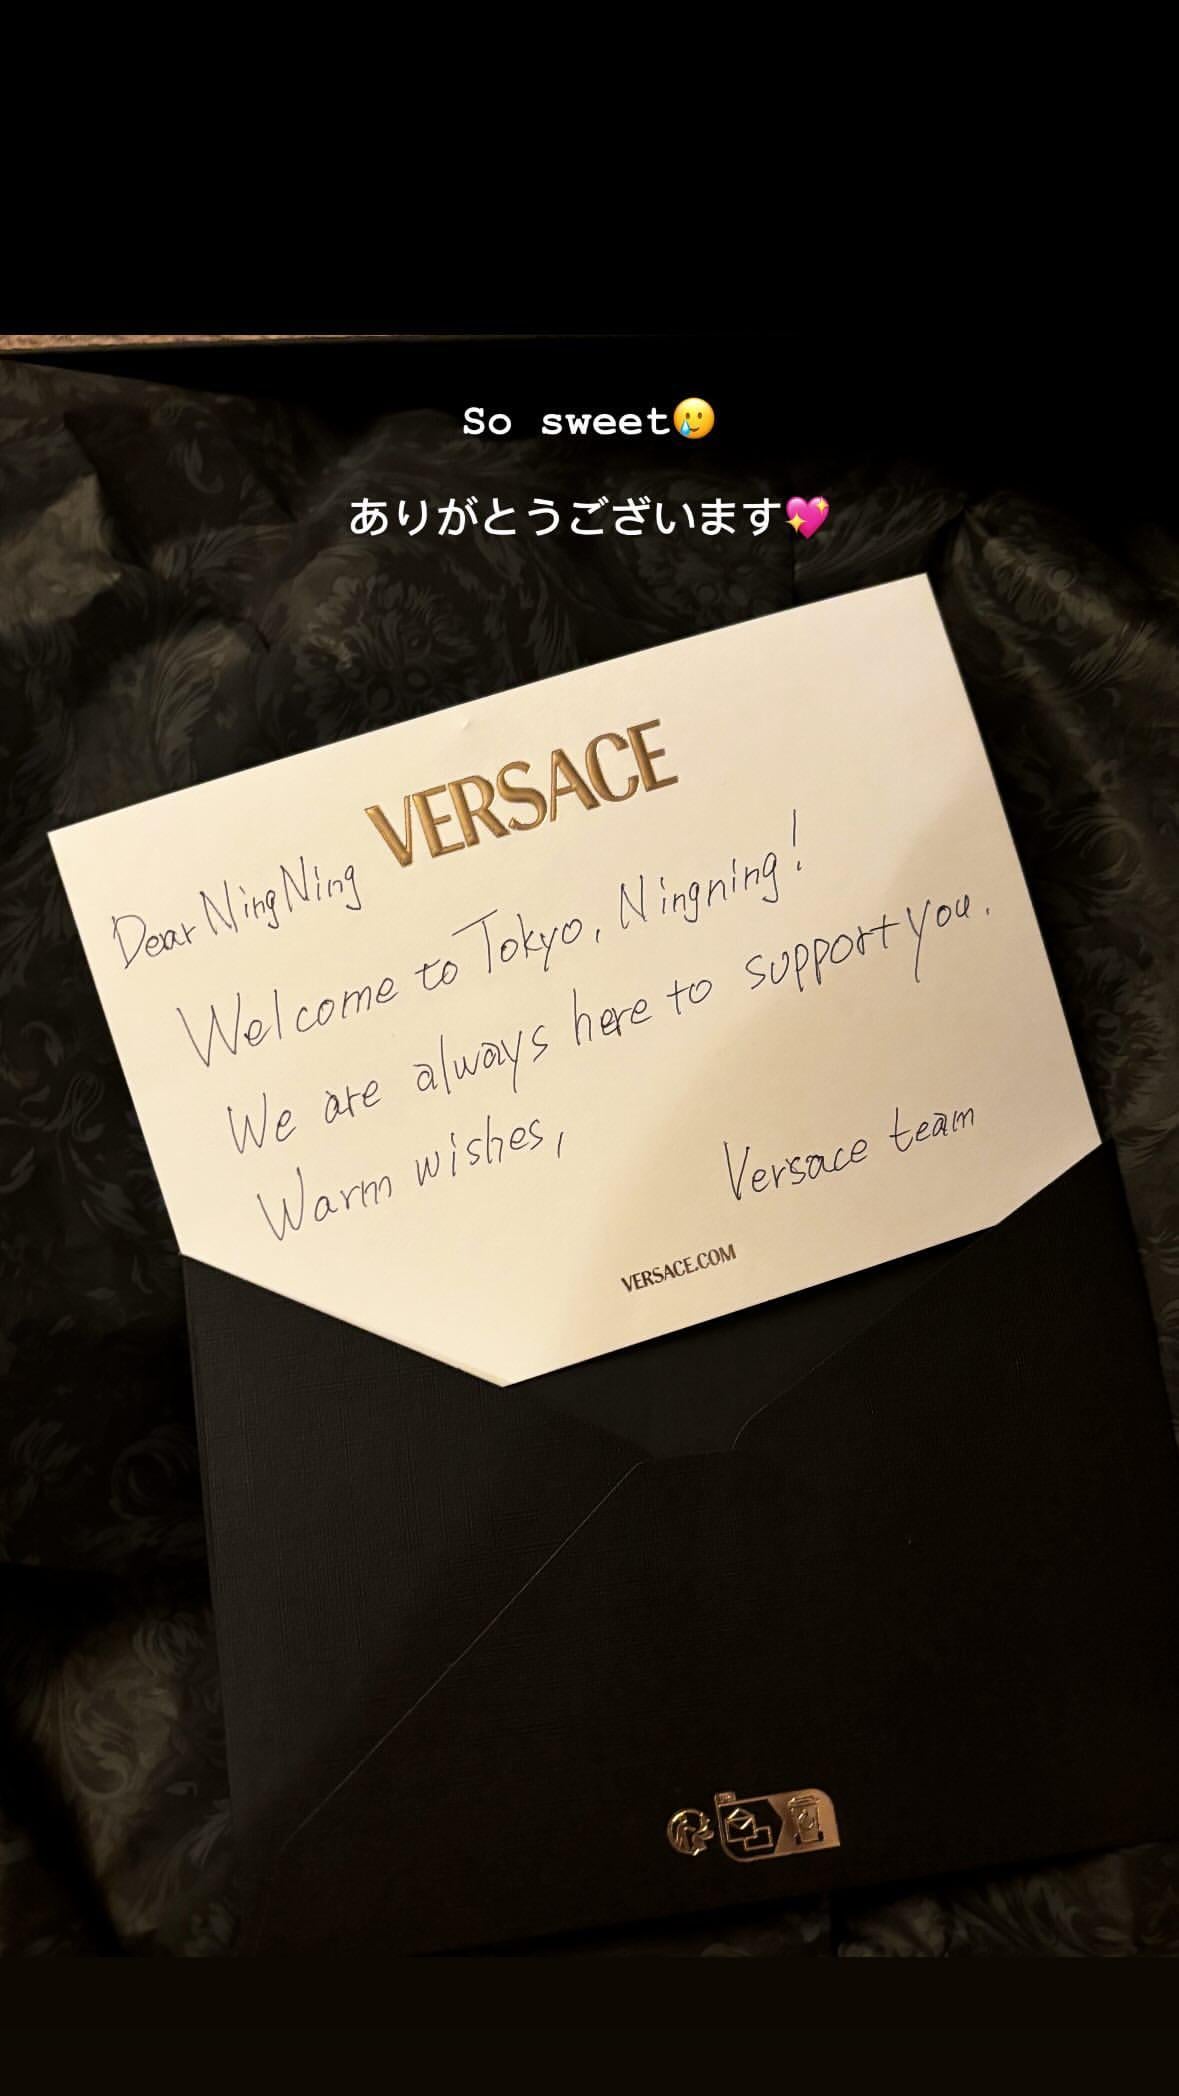 So sweet🥲
ありがとうございます💖
VERSACE
Dear NingNing
Welcome to Tokyo, Ningning!
We are always here to support you.
Warm wishes,
Versace team
VERSACE.COM